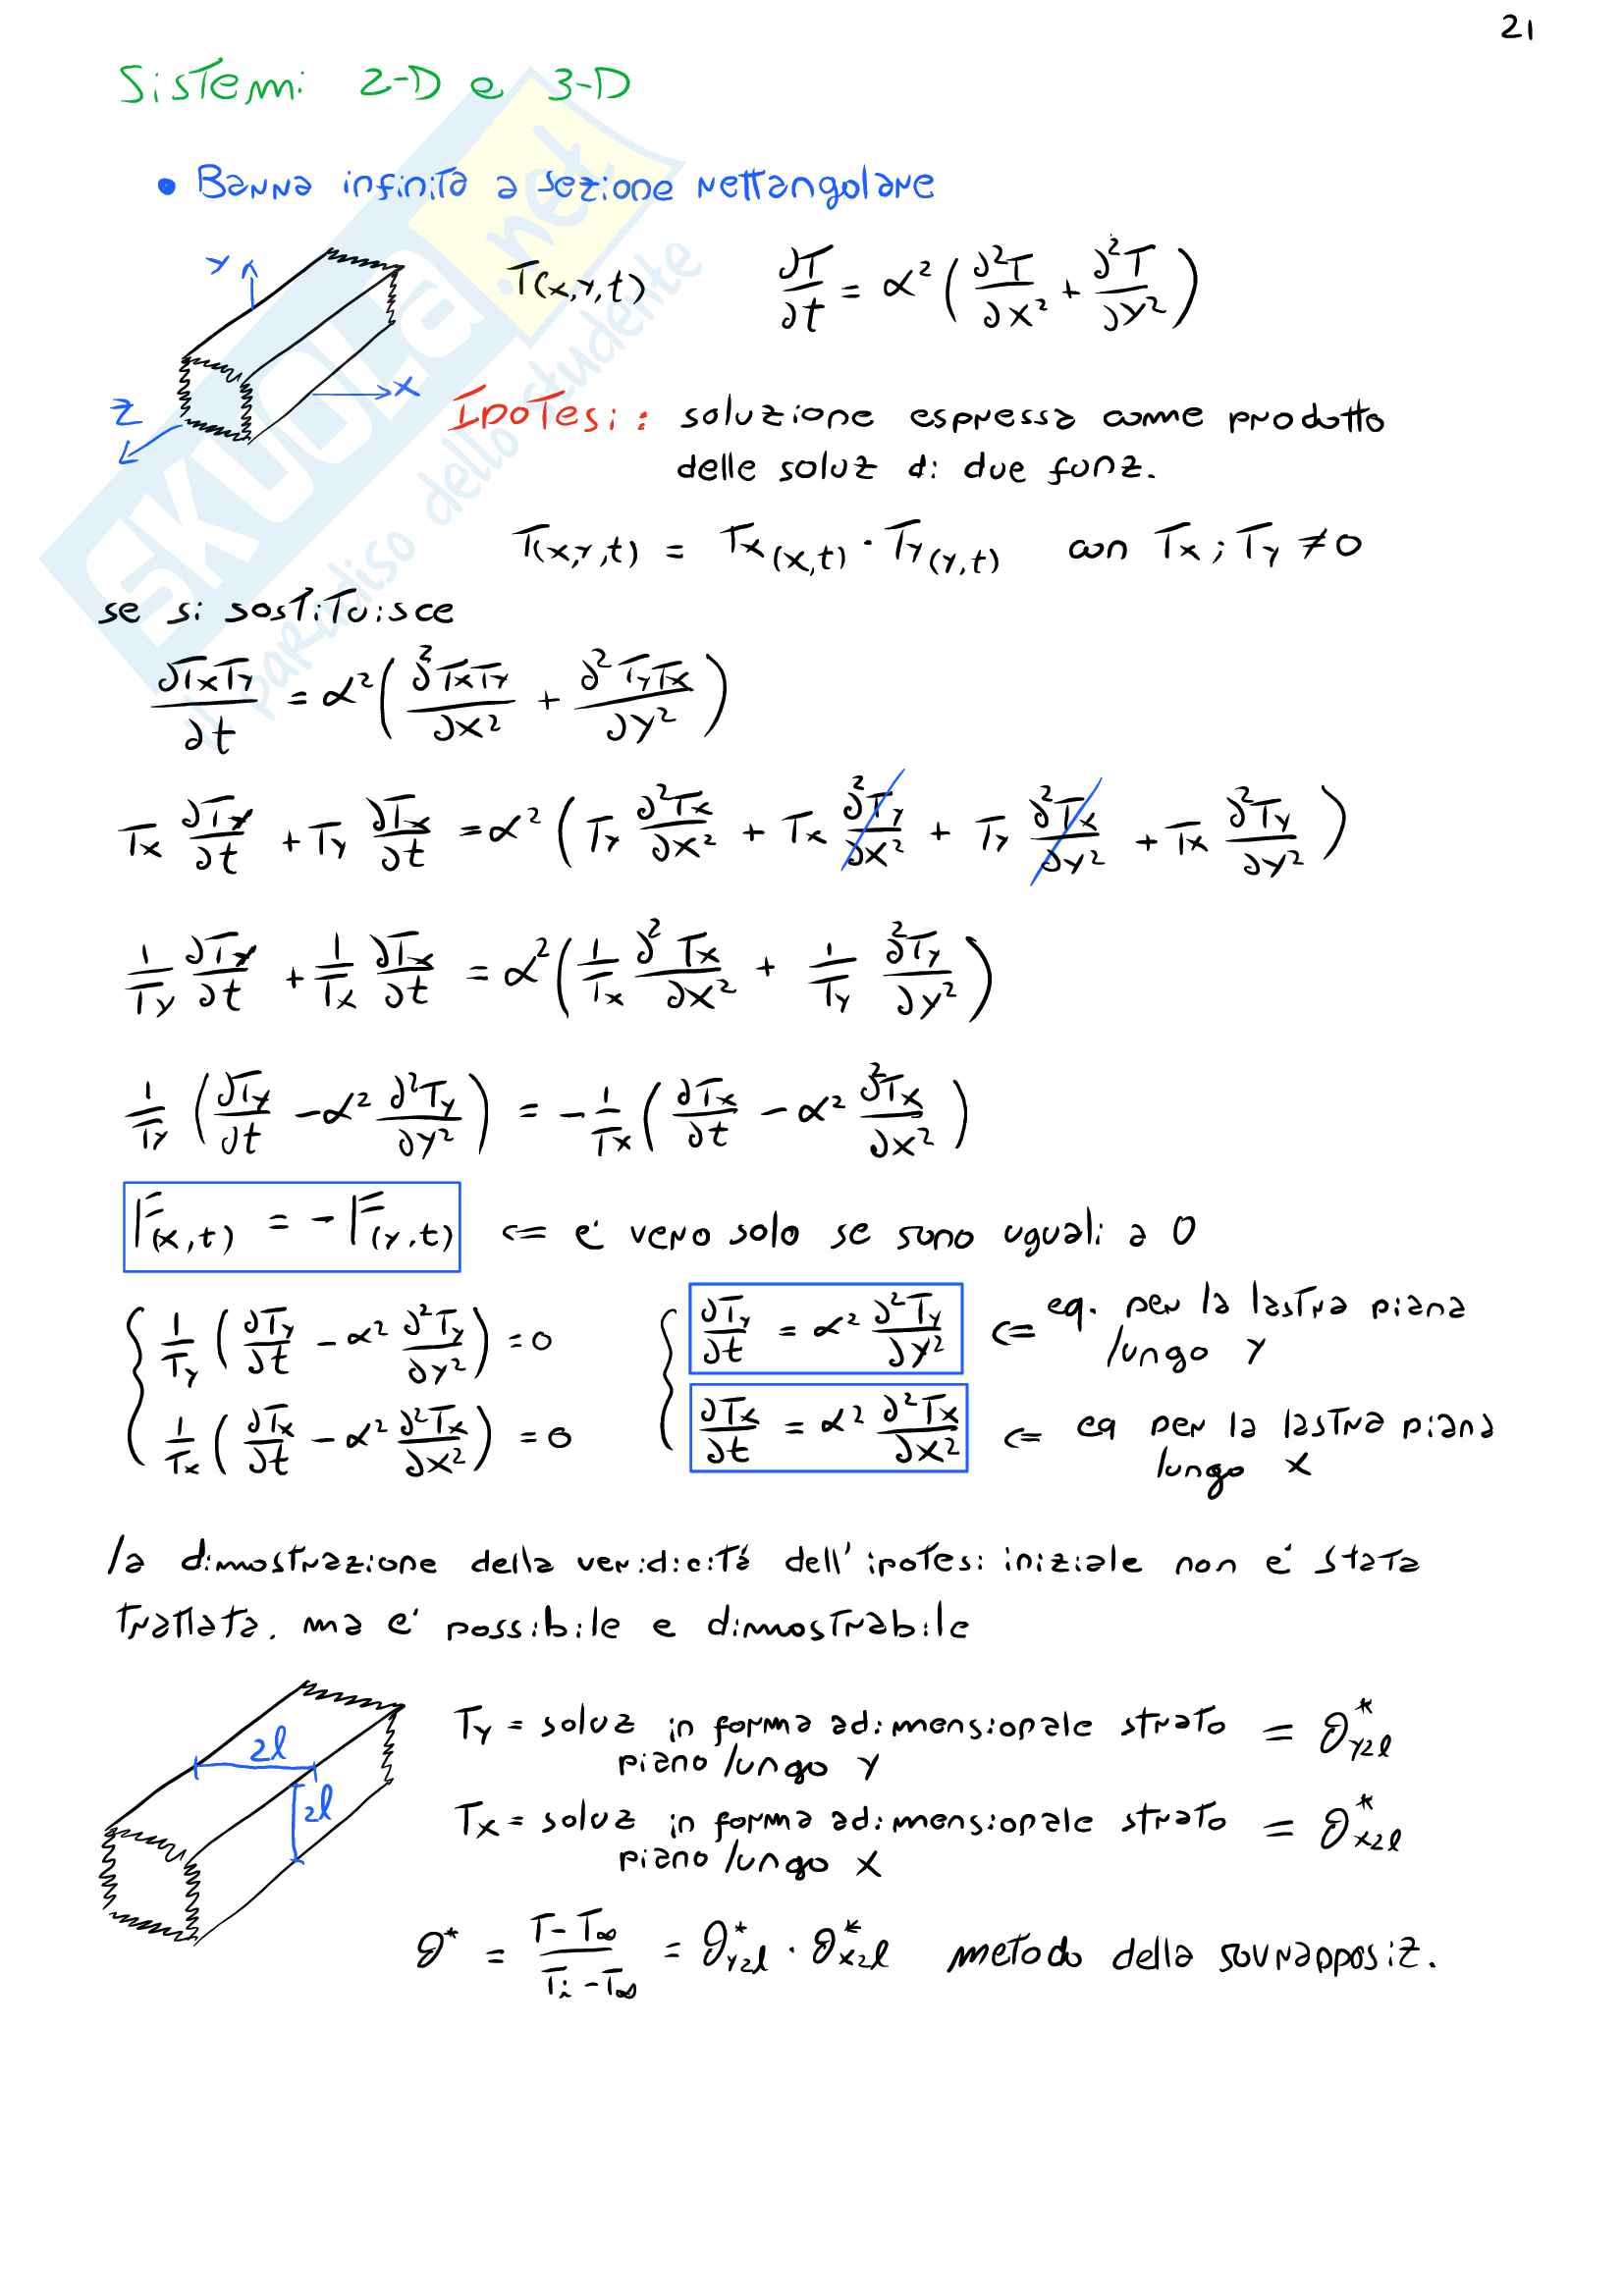 21
Sistemi 2-D e 3-D
• Barra infinita a sezione rettangolare
T(x,y,t) ∂T/∂t = α² ( ∂²T/∂x² + ∂²T/∂y² )
y
x
z
Ipotesi: soluzione espressa come prodotto
delle soluz di due funz.
T(x,y,t) = Tx(x,t) · Ty(y,t) con Tx ; Ty ≠ 0
se si sostituisce
∂TxTy/∂t = α² ( ∂²TxTy/∂x² + ∂²TyTx/∂y² )
Tx ∂Ty/∂t + Ty ∂Tx/∂t = α² ( Ty ∂²Tx/∂x² + Tx ∂²Ty/∂x² + Ty ∂²Tx/∂y² + Tx ∂²Ty/∂y² )
1/Ty ∂Ty/∂t + 1/Tx ∂Tx/∂t = α² ( 1/Tx ∂²Tx/∂x² + 1/Ty ∂²Ty/∂y² )
1/Ty ( ∂Ty/∂t - α² ∂²Ty/∂y² ) = - 1/Tx ( ∂Tx/∂t - α² ∂²Tx/∂x² )
F(x,t) = - F(y,t) <= e' vero solo se sono uguali a 0
1/Ty ( ∂Ty/∂t - α² ∂²Ty/∂y² ) = 0 ∂Ty/∂t = α² ∂²Ty/∂y² <= eq. per la lastra piana
lungo y
1/Tx ( ∂Tx/∂t - α² ∂²Tx/∂x² ) = 0 ∂Tx/∂t = α² ∂²Tx/∂x² <= eq per la lastra piana
lungo x
la dimostrazione della veridicitá dell'ipotesi iniziale non e' stata
trattata. ma e' possibile e dimostrabile
2l
2l
Ty = soluz in forma adimensionale strato = θ*y2l
piano lungo y
Tx = soluz in forma adimensionale strato = θ*x2l
piano lungo x
θ* = T - T∞ / Ti - T∞ = θ*y2l · θ*x2l metodo della sovrapposiz.
SKUOLA.net
il paradiso dello studente